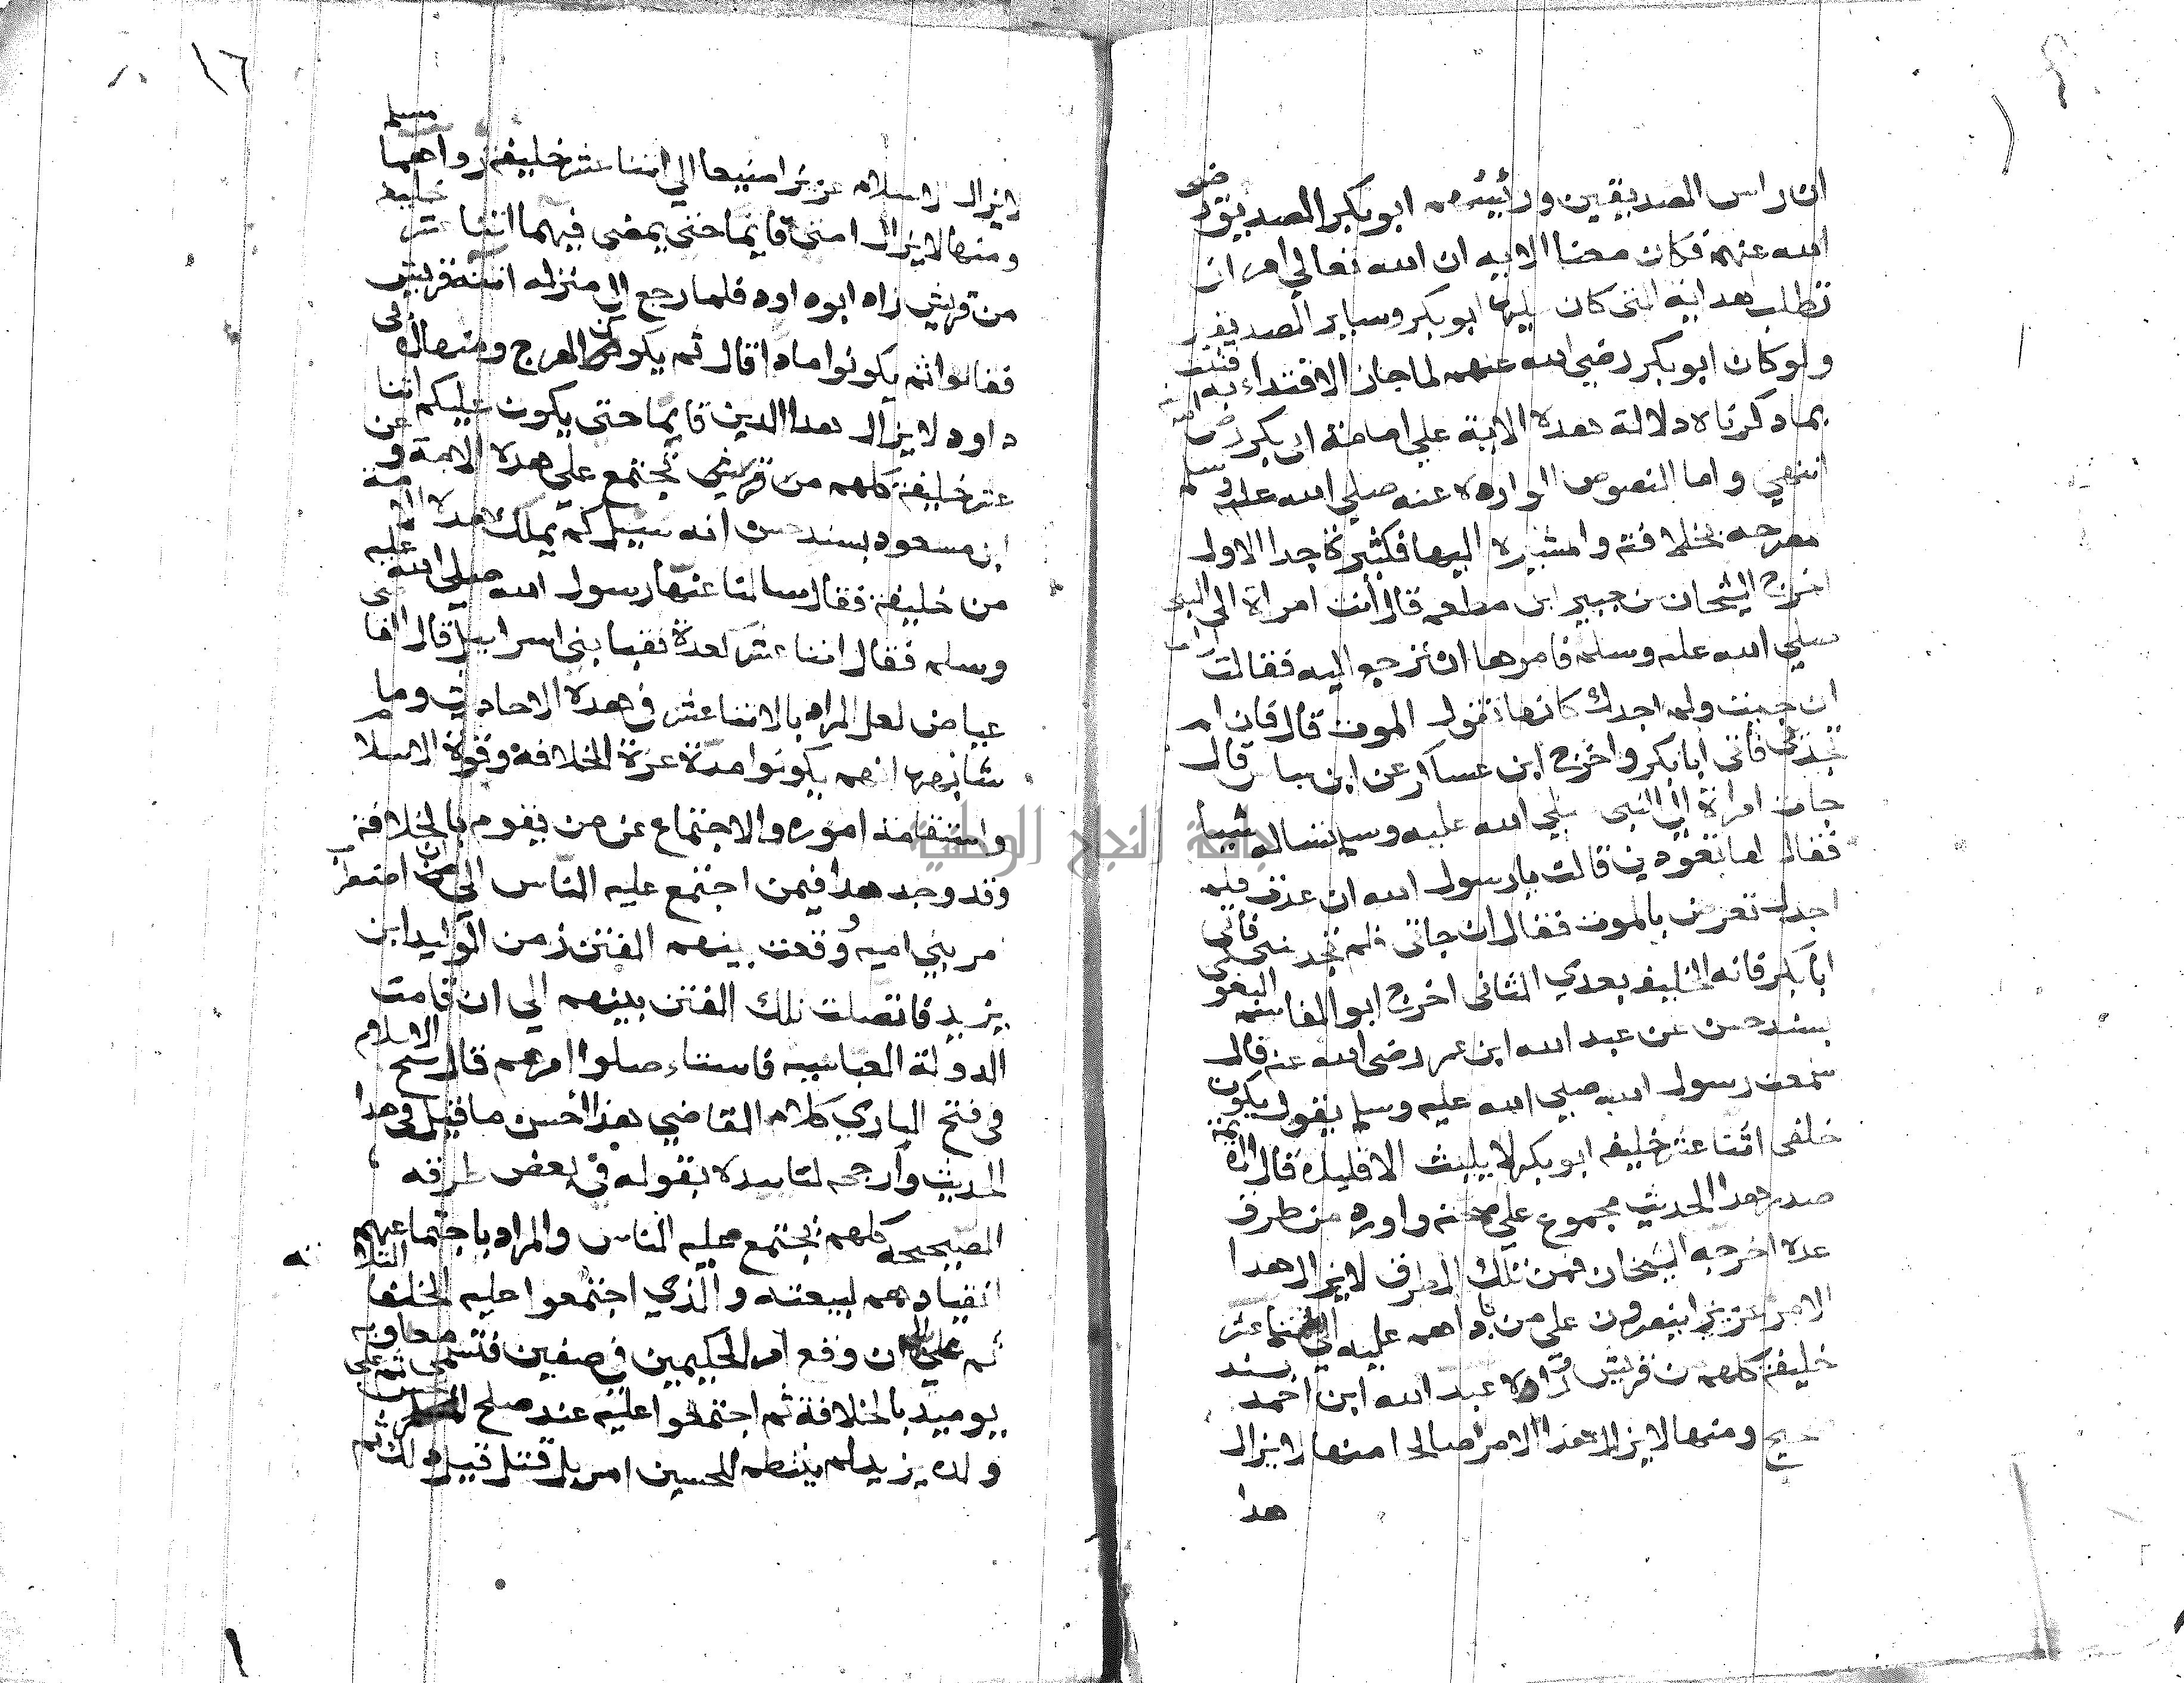 ان راس الصديقين ورئيسهم ابو بكر الصديق رضى
الله عنهم فكان معنا الايه ان الله تعالي امر ان
تطلب هدايه التى كان عليها ابو بكر وساير الصديقين
ولو كان ابو بكر رضي الله عنهم لما جاز الاقتداء به فثبت
بما دكرناه دلالة هده الاية علي امامة ابى بكر رضى الله
انتهي واما النصوص الوارده عنه صلي الله عليه وسلم
مصرحه بخلافته والمشيره اليها فكثيرة جدا الاول
اخرج الشيخان عن جبير ابن مطعم قال أتت امراة الى النبى
صلي الله عليه وسلم فامرها ان ترجع اليه فقالت ارايت
ان جيت ولم اجدك كانها تقول الموت قال فان لم
تجدني فأتى ابا بكر واخرج ابن عساكر عن ابن عباس قال
جات امراة الى النبى صلي الله عليه وسلم تساله شيا
فقال لها تعودين قالت يا رسول الله ان عدت فلم
اجدك تعرض بالموت فقال ان جاتى فلم تجدينى فاتى
ابا بكر فانه الخليفه بعدي الثانى اخرج ابو القاسم البغوى
بسند حسن عن عبد الله ابن عمر رضى الله عنه قال
سمعت رسول الله صلي الله عليه وسلم يقول يكون
خلفى اثنا عشر خليفه ابو بكر لا يلبث الا قليلا قال الائمة
صدر هدا الحديث مجموع علي صحته وارد من طرق
عده اخرجه الشيخان فمن تلك الطرق لا يزال هدا
الامر عزيزا ينصرون علي من ناداهم عليه الى اثنا عشر
خليفة كلهم من قريش رواه عبد الله ابن احمد بسند
صحيح ومنها لا يزال هذا الامر صالحا ومنها لا يزال
هدا
١٦
لايزال الاسلام عزيزا منيعا الي اثنا عشر خليفة رواهما مسلم
ومنها لا يزال امتى قايما حتى يمضى فيهما اثنا عشر خليفه
من قريش زاد ابو داود فلما رجع الى منزله اتته قريش
فقالوا ثم يكونوا مادا قال ثم يكون الهرج ومنها لابى
داود لا يزال هدا الدين قايما حتى يكون عليكم اثنا
عشر خليفة كلهم من قريش تجتمع علي هده الامة وعن
ابن مسعود بسند حسن انه سيل كم يملك هده الامة
من خليفة فقال سالنا عنها رسول الله صلي الله عليه
وسلم فقال اثنا عشر كعدة نقبا بنى اسراييل قال القاضى
عياض لعل المراد بالاثنا عشر فى هده الاحاديث وما
شابهها انهم يكونوا مدة عزة الخلافة وقوة الاسلام
واستقامة اموره والاجتماع عن من يقوم بالخلافة
وقد وجد هدا فيمن اجتمع عليه الناس الى ان اضطر
امر بني اميه ووقعت بينهم الفتن زمن الوليد ابن
يزيد فاتصلت تلك الفتن بينهم الي ان قامت
الدولة العباسيه فاستاءصلوا امرهم قال شيخ الاسلام
فى فتح الباري كلام القاضي هذا أحسن ما قيل فى هدا
الحديث وارجحه لتاييده بقوله فى بعض طرقه
الصحيحه كلهم يجتمع عليه الناس والمراد باجتماعهم
انقيادهم لبيعته والذي اجتمعوا عليه الخلفا الثلاثه
ثم علي الى ان وقع امر الحكيمين في صفين فتسمى معاويه
يوميد بالخلافة ثم اجتمعوا عليه عند صلح الحسن ثم على
ولده يزيد لم ينتظم للحسين امر بل قتل قبل ذلك ثم
جامعة النجاح الوطنية